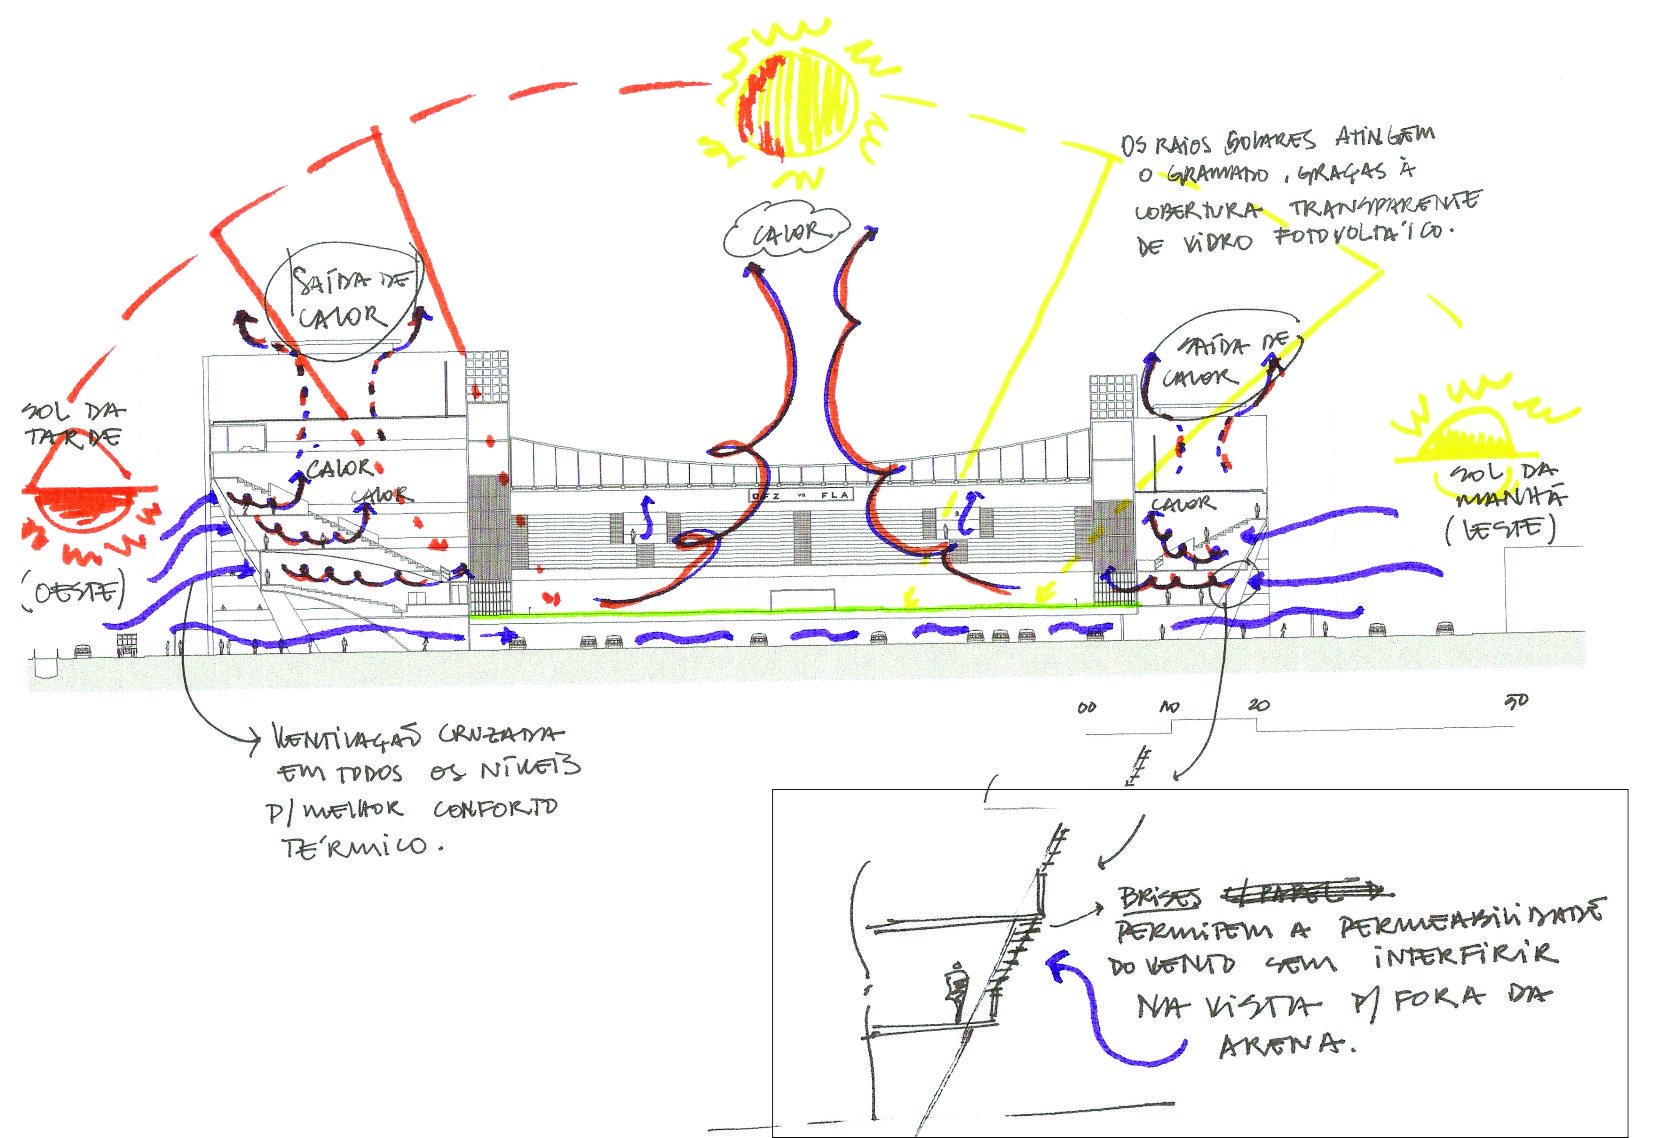 OS RAIOS SOLARES ATINGEM
O GRAMADO, GRAÇAS À
COBERTURA TRANSPARENTE
DE VIDRO FOTOVOLTAICO.
CALOR
SAÍDA DE
CALOR
SAÍDA DE
CALOR
SOL DA
TARDE
(OESTE)
SOL DA
MANHÃ
(LESTE)
CALOR
CALOR
CALOR
VS FLA
00 10 20 50
VENTILAÇÃO CRUZADA
EM TODOS OS NÍVEIS
P/ MELHOR CONFORTO
TÉRMICO.
BRISES
PERMITEM A PERMEABILIDADE
DO VENTO SEM INTERFIRIR
NA VISTA P/ FORA DA
ARENA.